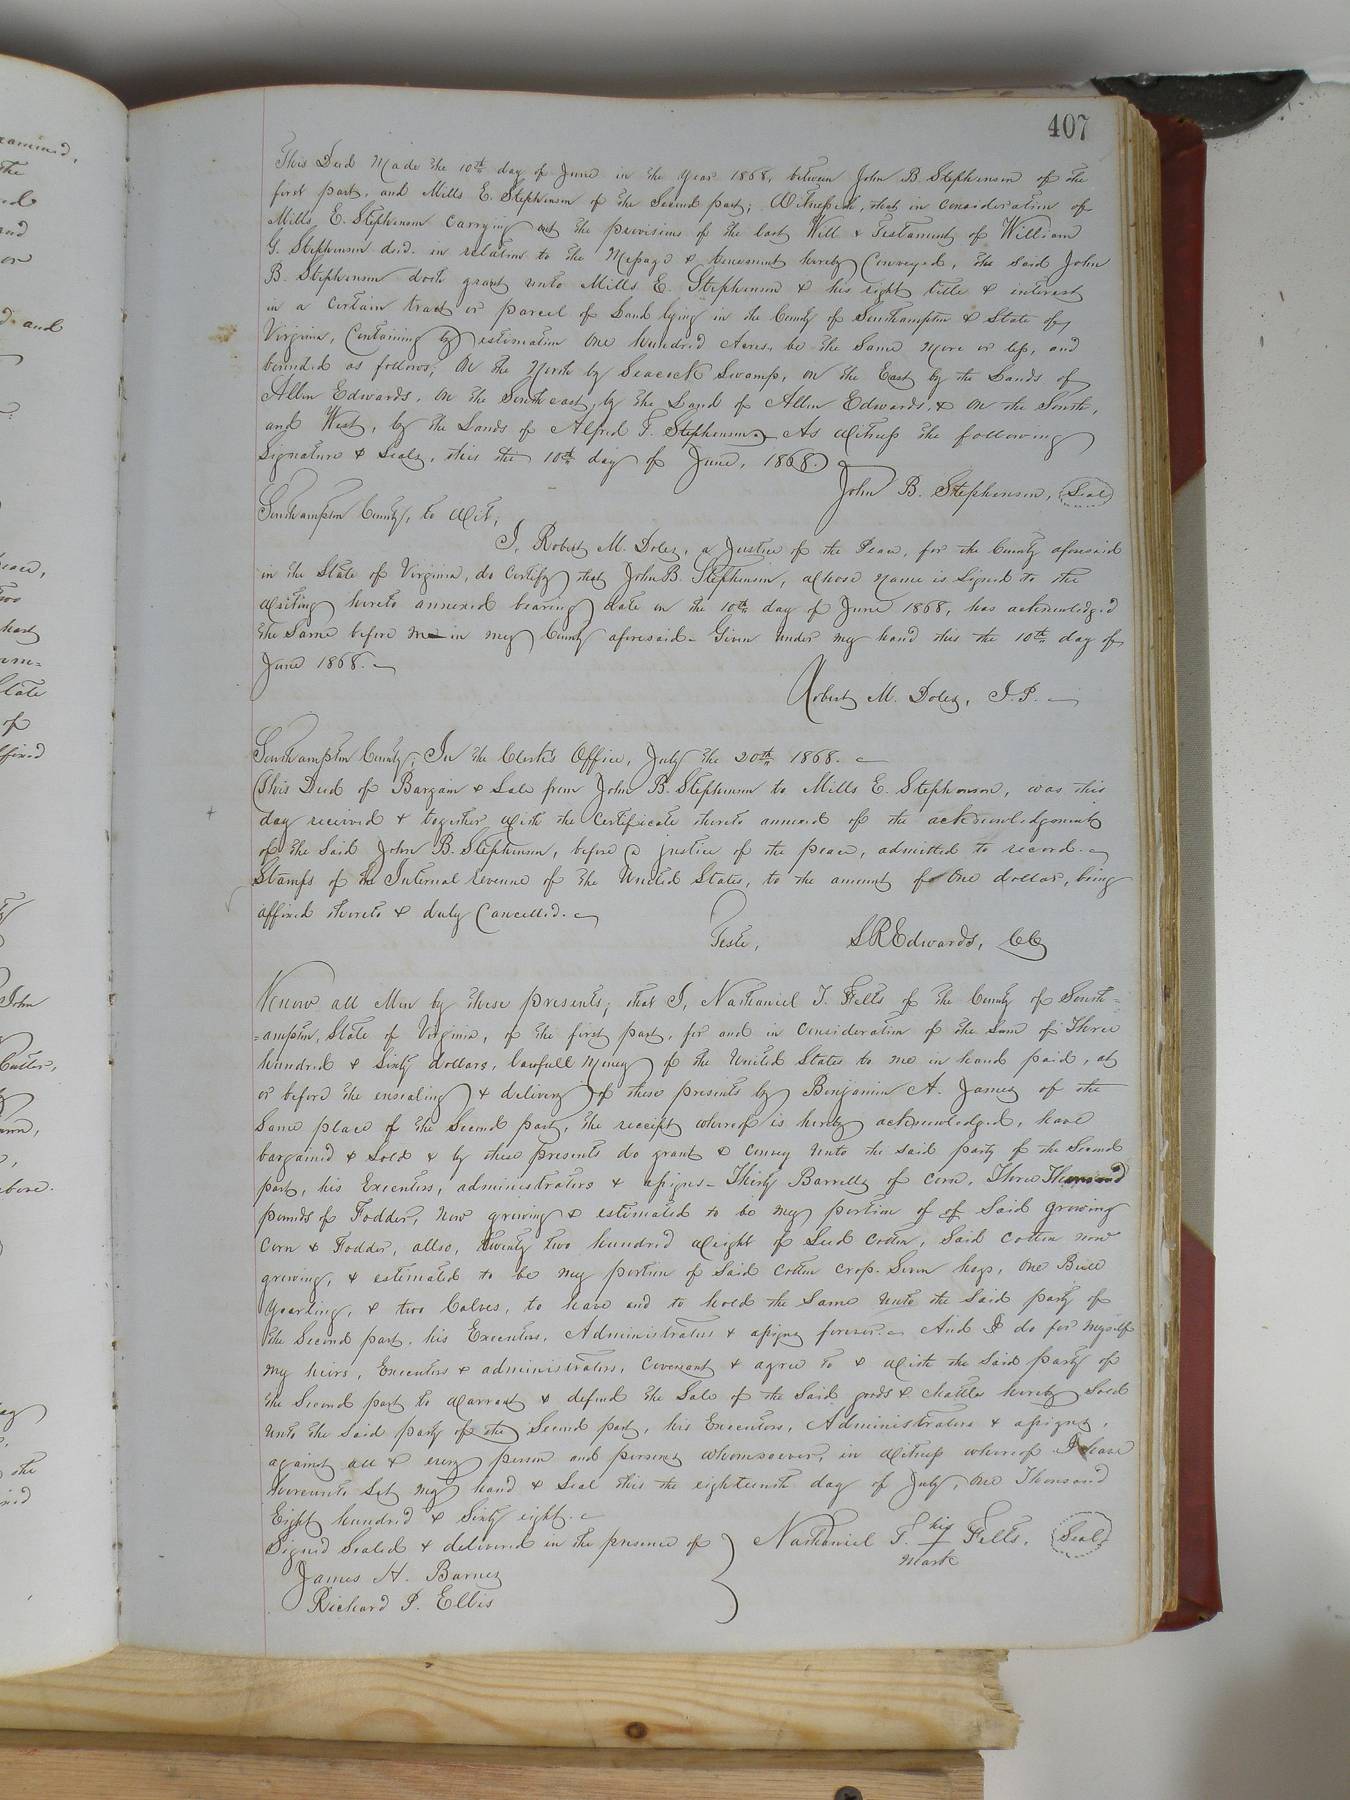 407
This Deed Made the 10th day of June in the year 1868, between John B. Stephenson of the
first part, and Mills E. Stephenson of the Second part; Witnesseth, that in consideration of
Mills E. Stephenson carrying out the provisions of the last Will & Testament of William
G. Stephenson decd. in relation to the Message & tenement hereby Conveyed, the said John
B. Stephenson doth grant unto Mills E. Stephenson & his right title & interest
in a certain tract or parcel of Land lying in the County of Southampton & State of
Virginia, Containing by estimation One hundred Acres, be the Same more or less, and
bounded as follows; On the North by Seacock Swamp, on the East by the Lands of
Allen Edwards, on the South east, by the Land of Allen Edwards, & on the South,
and West, by the Lands of Alfred T. Stephenson. As Witness the following
Signature & Seals, this the 10th day of June, 1868.
John B. Stephenson, Seal
Southampton County, to Wit;
I, Robert M. Doles, a Justice of the Peace, for the County aforesaid
in the State of Virginia, do certify that John B. Stephenson, whose name is Signed to the
writing hereto annexed bearing date on the 10th day of June 1868, has acknowledged
the Same before me in my County aforesaid - Given under my hand this the 10th day of
June 1868.
Robert M. Doles, J.P.
Southampton County; In the Clerk's Office, July the 20th 1868.
This Deed of Bargain & Sale from John B. Stephenson to Mills E. Stephenson, was this
day received & together with the Certificate thereto annexed of the acknowledgment
of the Said John B. Stephenson, before a justice of the peace, admitted to record.
Stamps of the Internal revenue of the United States, to the amount of One dollar, being
affixed thereto & duly Cancelled.
Teste, LREdwards, CC
Know all Men by these presents; that I, Nathaniel T. Felts of the County of South=
=ampton, State of Virginia, of the first part, for and in consideration of the Sum of Three
hundred & Sixty dollars, lawfull money of the United States to me in hand paid, at
or before the ensealing & delivery of these presents by Benjamin A. James of the
Same place of the Second part, the receipt whereof is hereby acknowledged, have
bargained & Sold & by these presents do grant & convey unto the said party of the Second
part, his Executors, administrators & assigns - Thirty Barrells of corn, Three Thousand
pounds of Fodder, now growing & estimated to be my portion of of Said growing
Corn & Fodder, allso, twenty two hundred weight of Seed Cotton, Said cotton now
growing, & estimated to be my portion of Said cotton crop. Seven hogs, One
Yearling, & two Calves, to have and to hold the Same unto the Said party of
the Second part, his Executors, Administrators & assigns forever. And I do for myself
my heirs, Executors & administrators, Covenant & agree to & with the Said party of
the Second part to Warrant & defend the Sale of the Said goods & chattles hereby Sold
Unto the said party of the Second part, his Executors, Administrators & assigns,
against all & every person and persons whomsoever, in witness whereof I have
Hereunto Set my hand & Seal this the eighteenth day of July, One Thousand
Eight hundred & Sixty eight.
Signed Sealed & delivered in the presence of Nathaniel T. his Felts, Seal
mark
James H. Barnes
Richard P. Ellis